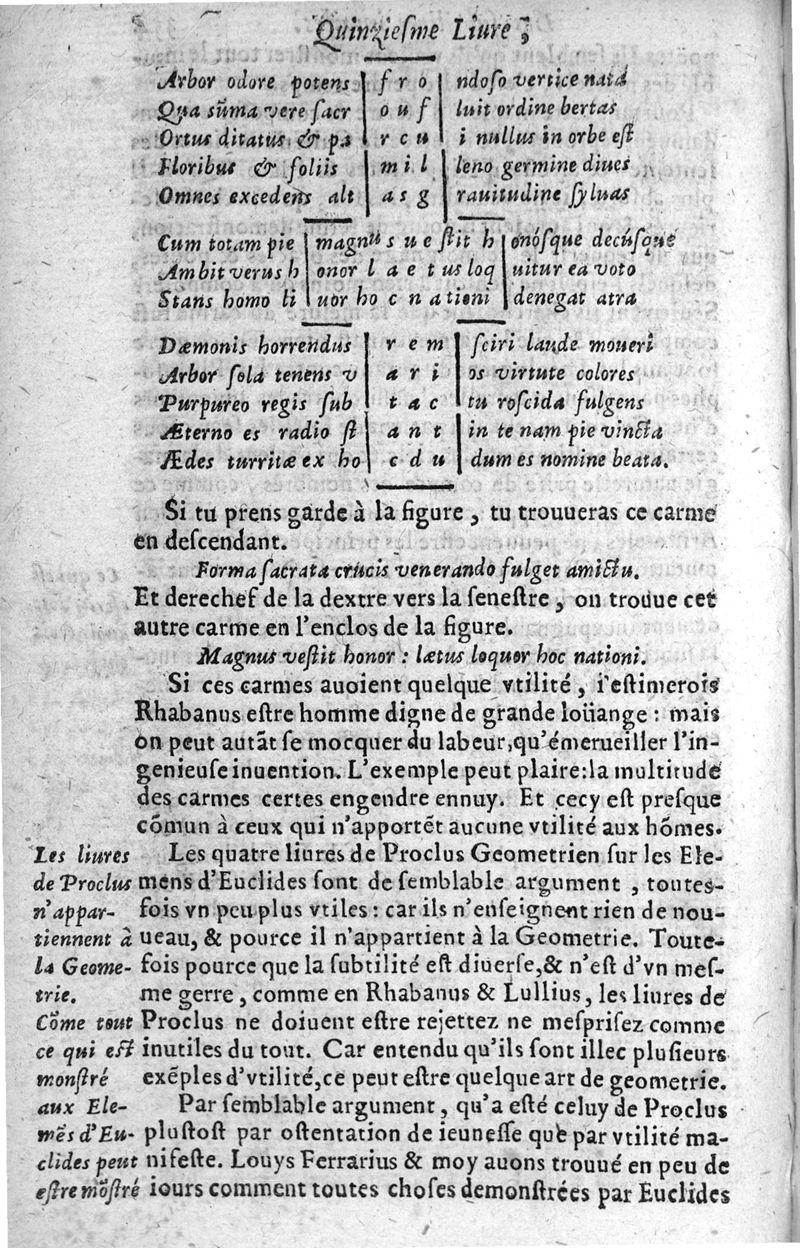 Quinziesme Liure,
Arbor odore potens | f r o | ndoso vertice nata
Qua sũma vere sacr | o u f | luit ordine bertas
Ortus ditatus & pa | r c u | i nullus in orbe est
Floribus & foliis | m i l | leno germine diues
Omnes excedens alt | a s g | rauitudine syluas
Cum totam pie | magnus u e stit h | onósque decúsque
Ambit verus h | onor l a e t us loq | uitur ea voto
Stans homo li | uor ho c n ationi | denegat atra
Dæmonis horrendus | r e m | sciri laude moueri
Arbor sola tenens v | a r i | os virtute colores
Purpureo regis sub | t a c | tu roscida fulgens
Æterno es radio st | a n t | in te nam pie vincta
Ædes turritæ ex ho | c d u | dum es nomine beata.
Si tu prens garde à la figure, tu trouueras ce carme
en descendant.
Forma sacrata crucis venerando fulget amictu.
Et derechef de la dextre vers la senestre, on trouue cet
autre carme en l'enclos de la figure.
Magnus vestit honor : lætus loquor hoc nationi.
Si ces carmes auoient quelque vtilité, i'estimerois
Rhabanus estre homme digne de grande loüange : mais
on peut autãt se mocquer du labeur, qu'émerueiller l'in-
genieuse inuention. L'exemple peut plaire: la multitude
des carmes certes engendre ennuy. Et cecy est presque
cõmun à ceux qui n'apportẽt aucune vtilité aux hõmes.
Les quatre liures de Proclus Geometrien sur les Ele-
mens d'Euclides sont de semblable argument, toutes-
fois vn peu plus vtiles : car ils n'enseignent rien de nou-
ueau, & pource il n'appartient à la Geometrie. Toute-
fois pource que la subtilité est diuerse, & n'est d'vn mes-
me gerre, comme en Rhabanus & Lullius, les liures de
Proclus ne doiuent estre rejettez ne mesprisez comme
inutiles du tout. Car entendu qu'ils sont illec plusieurs
exẽples d'vtilité, ce peut estre quelque art de geometrie.
Par semblable argument, qu'a esté celuy de Proclus
plustost par ostentation de ieunesse que par vtilité ma-
nifeste. Louys Ferrarius & moy auons trouué en peu de
iours comment toutes choses demonstrées par Euclides
Les liures
de Proclus
n'appar-
tiennent à
la Geome-
trie.
Cõme tout
ce qui est
monstré
aux Ele-
mẽs d'Eu-
clides peut
estre mõstré